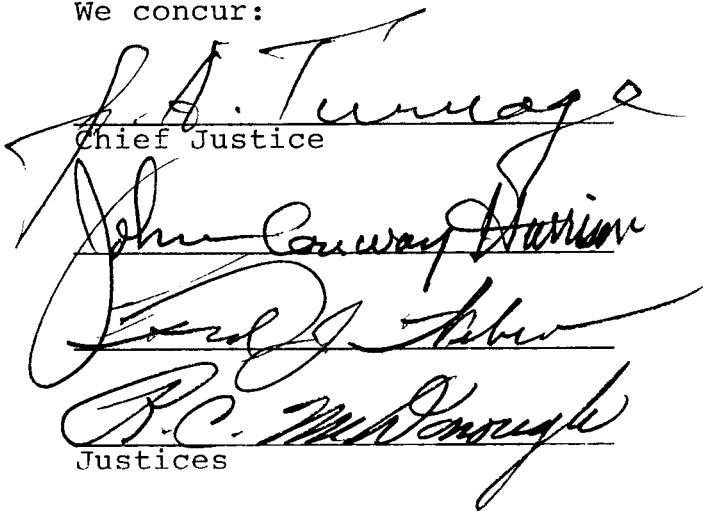 We concur:
J. A. Turnage
Chief Justice
John Conway Harrison
Fred J. Weber
R. C. McDonough
Justices